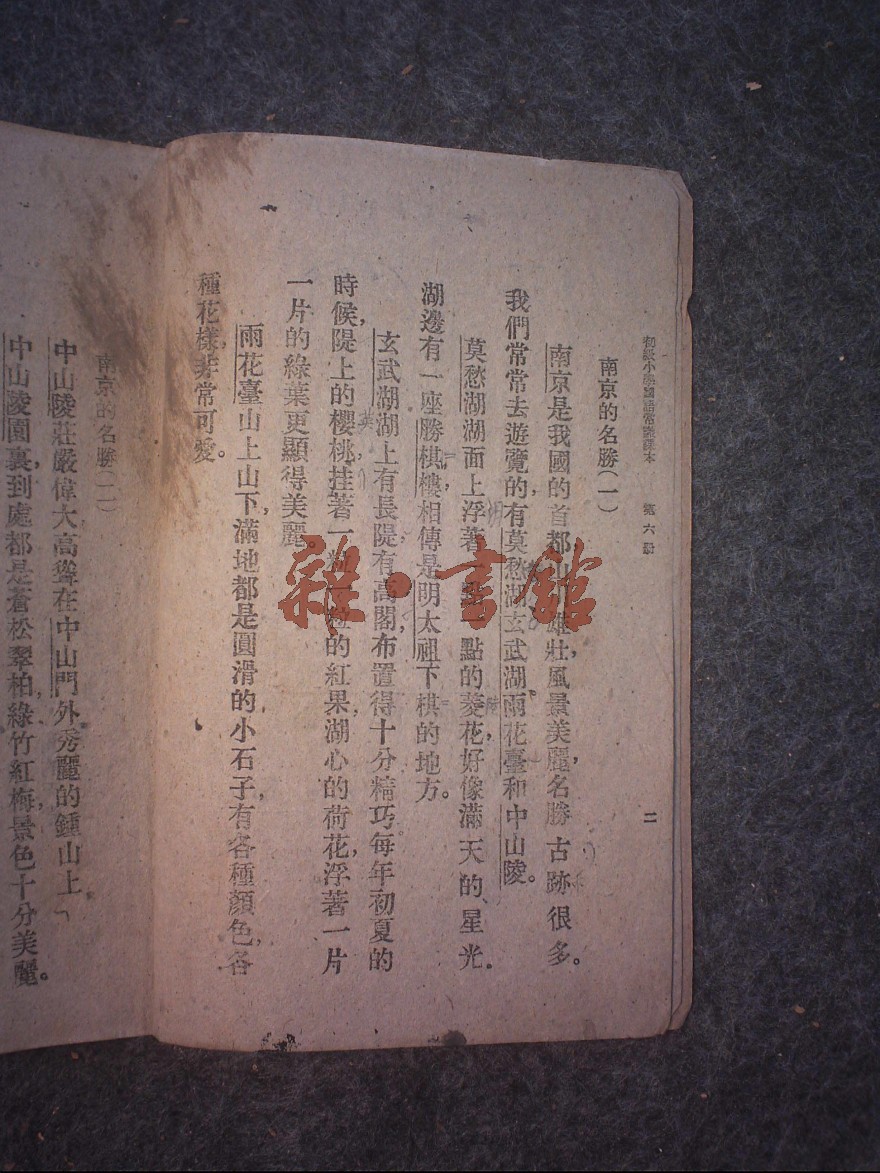 初級小學國語常識課本　第六冊
二
南京的名勝（一）
南京是我國的首都，山川雄壯，風景美麗，名勝古跡很多。
我們常常去遊覽的，有莫愁湖、玄武湖、雨花臺和中山陵。
莫愁湖湖面上浮著一點一點的菱花，好像滿天的星光。
湖邊有一座勝棋樓，相傳是明太祖下棋的地方。
玄武湖湖上有長隄，有高閣，布置得十分精巧。每年初夏的
時候，隄上的櫻桃，挂著一粒一粒的紅果，湖心的荷花，浮著一片
一片的綠葉，更顯得美麗。
雨花臺山上山下，滿地都是圓滑的小石子，有各種顏色，各
種花樣，非常可愛。
南京的名勝（二）
中山陵莊嚴偉大，高聳在中山門外秀麗的鍾山上。
中山陵園裏，到處都是蒼松翠柏，綠竹紅梅，景色十分美麗。
雜·書館